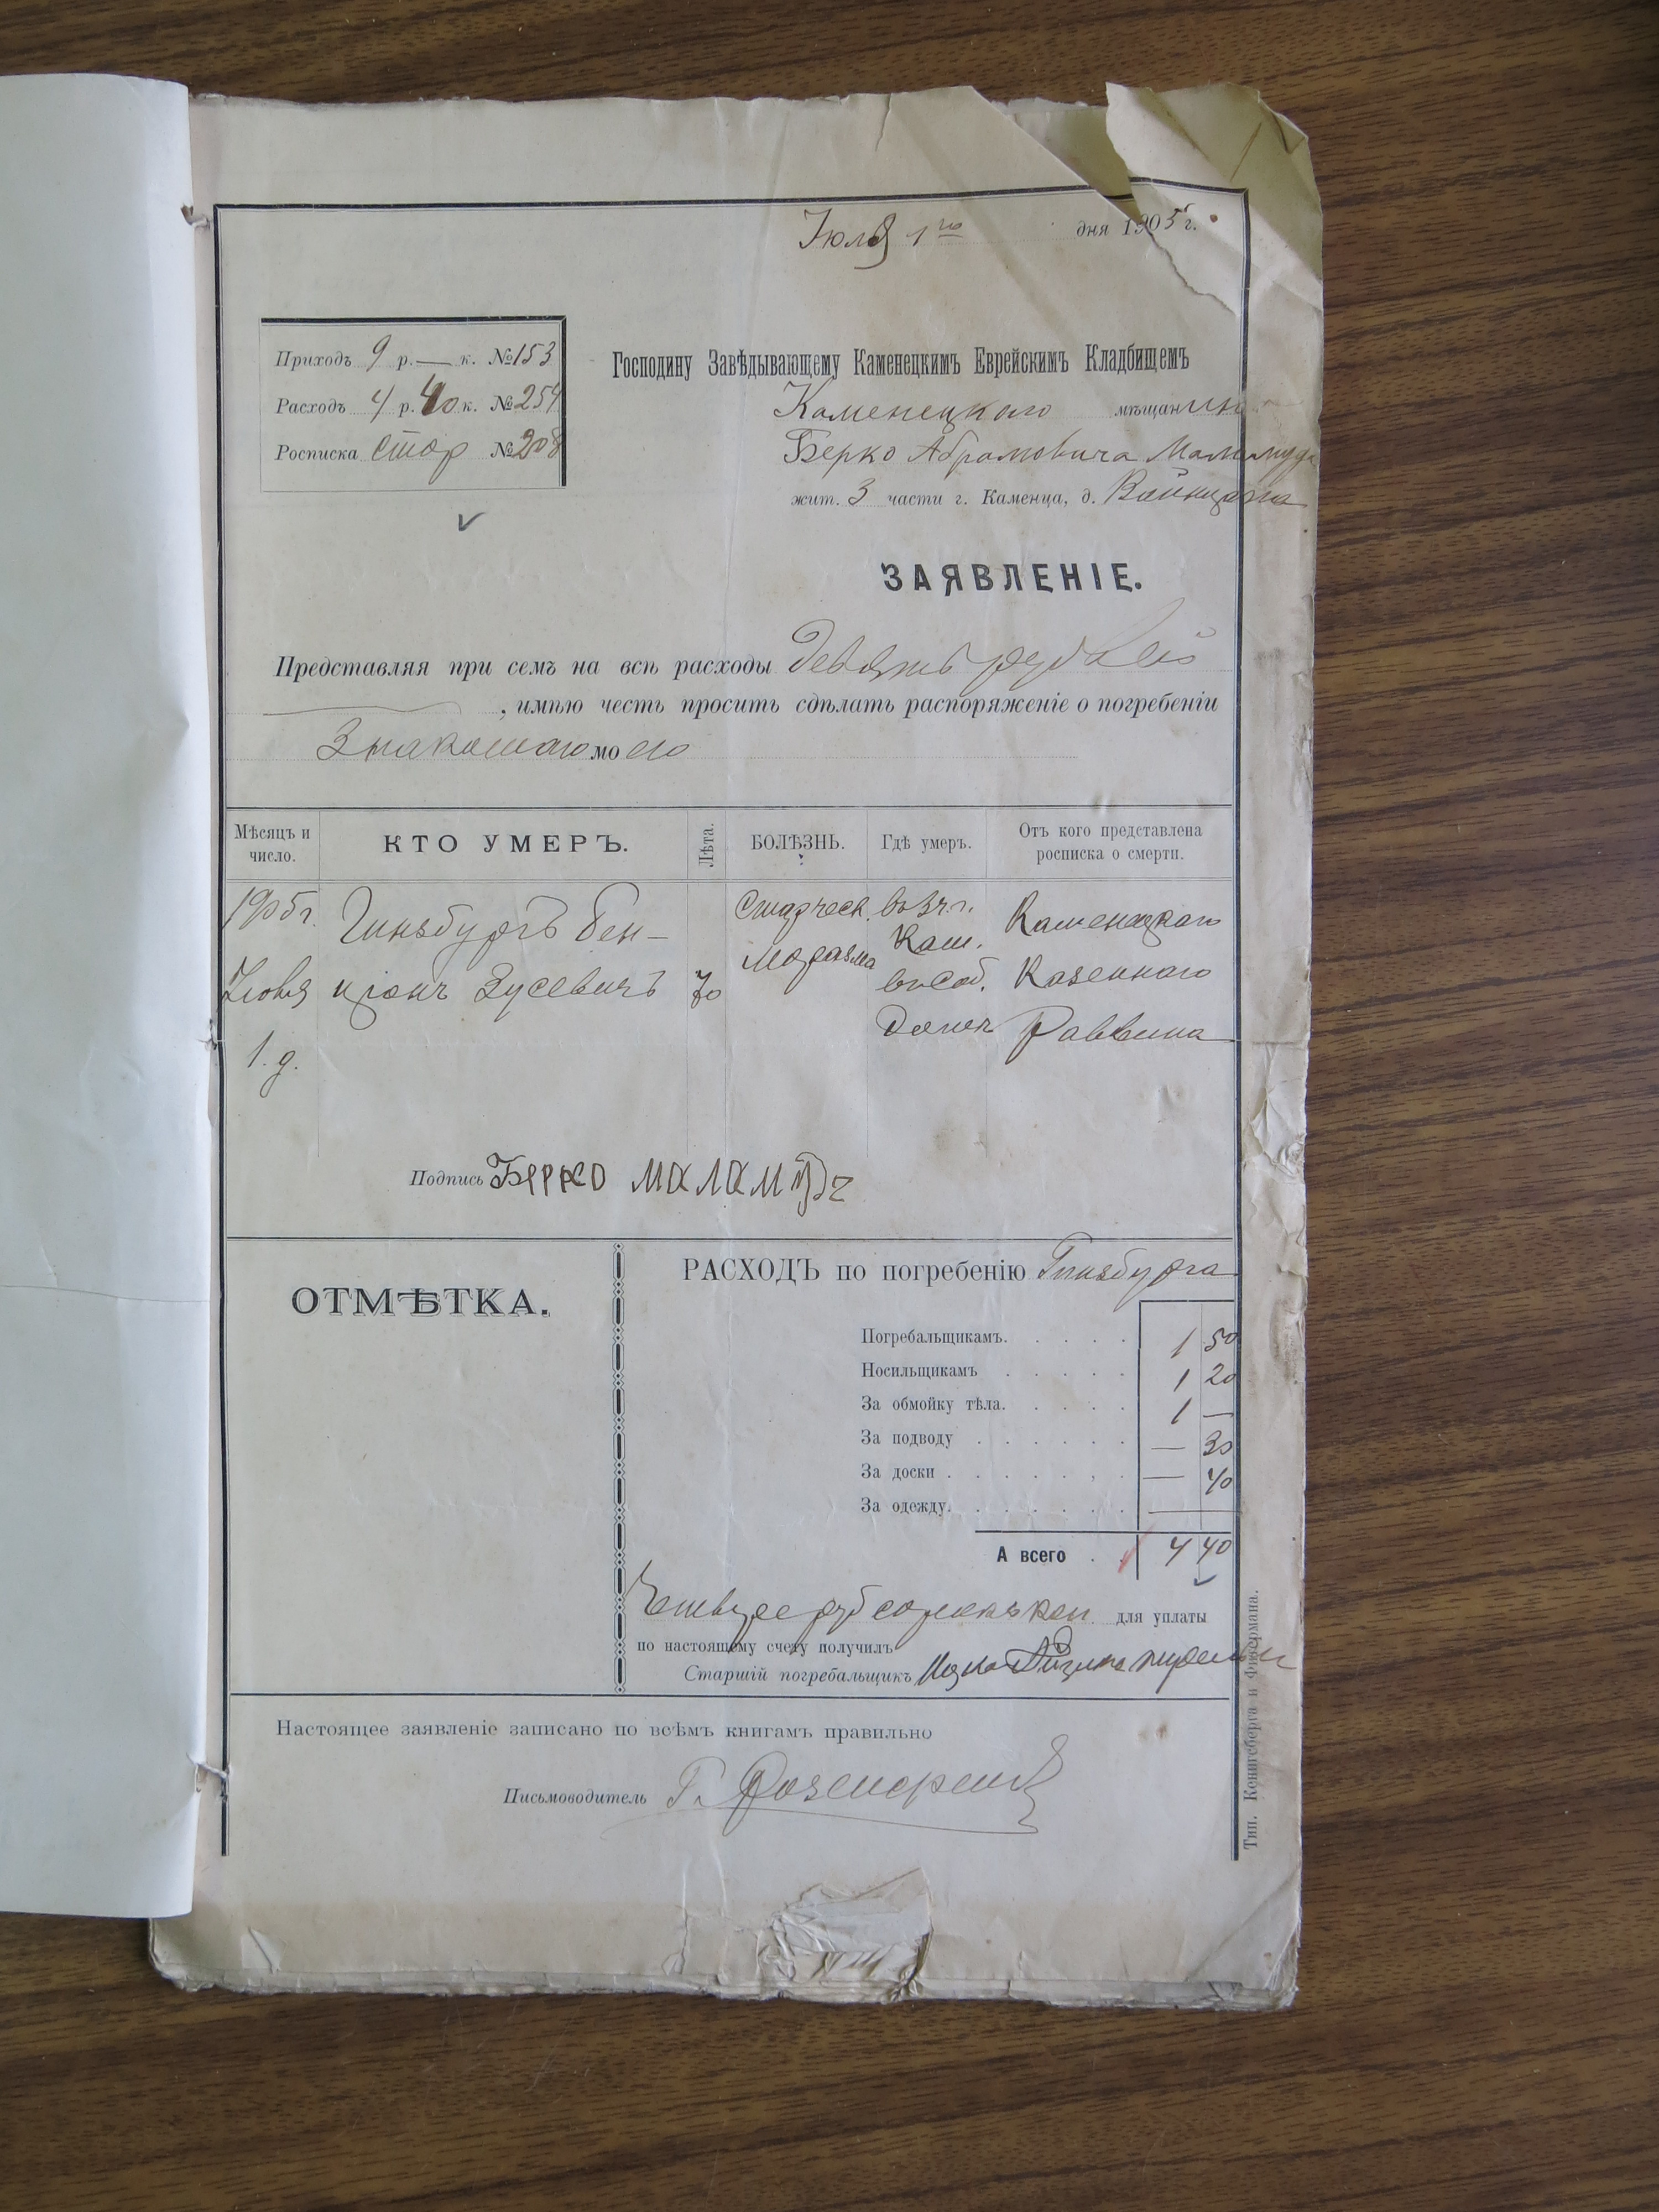 Іюля 1го дня 1905 г.
Приходъ 9 р. — к. №153
Расходъ 4 р. 40 к. №254
Росписка стор №208
Господину Завѣдывающему Каменецкимъ Еврейскимъ Кладбищемъ
Каменецкаго мѣщанин
Берко Абрамовича Маламуда
жит. 3 части г. Каменца, д.
ЗАЯВЛЕНІЕ.
Представляя при семъ на всѣ расходы Девять рублей
, имѣю честь просить сдѣлать распоряженіе о погребеніи
Знакомаго моего
Мѣсяцъ и число.
КТО УМЕРЪ.
Лѣта.
БОЛѢЗНЬ.
Гдѣ умеръ.
Отъ кого представлена росписка о смерти.
1905 г. Гинзбургъ Бен- Старческ. въ 3 ч. г. Каменецкаго
маразма Кам.
ціонъ Зусевичъ 70 въ соб. Казеннаго
домѣ Раввина
1. д.
Подпись Берко маламудъ
ОТМѢТКА.
РАСХОДЪ по погребенію Гинзбурга
Погребальщикамъ. 1 50
Носильщикамъ 1 20
За обмойку тѣла. 1 —
За подводу — 30
За доски — 40
За одежду. —
А всего 4 40
Четыре руб сорокъ коп для уплаты
по настоящему счету получилъ
Старшій погребальщикъ
Настоящее заявленіе записано по всѣмъ книгамъ правильно
Письмоводитель Г. Розенкранц
Тип. Кенигсберга и Фикермана.